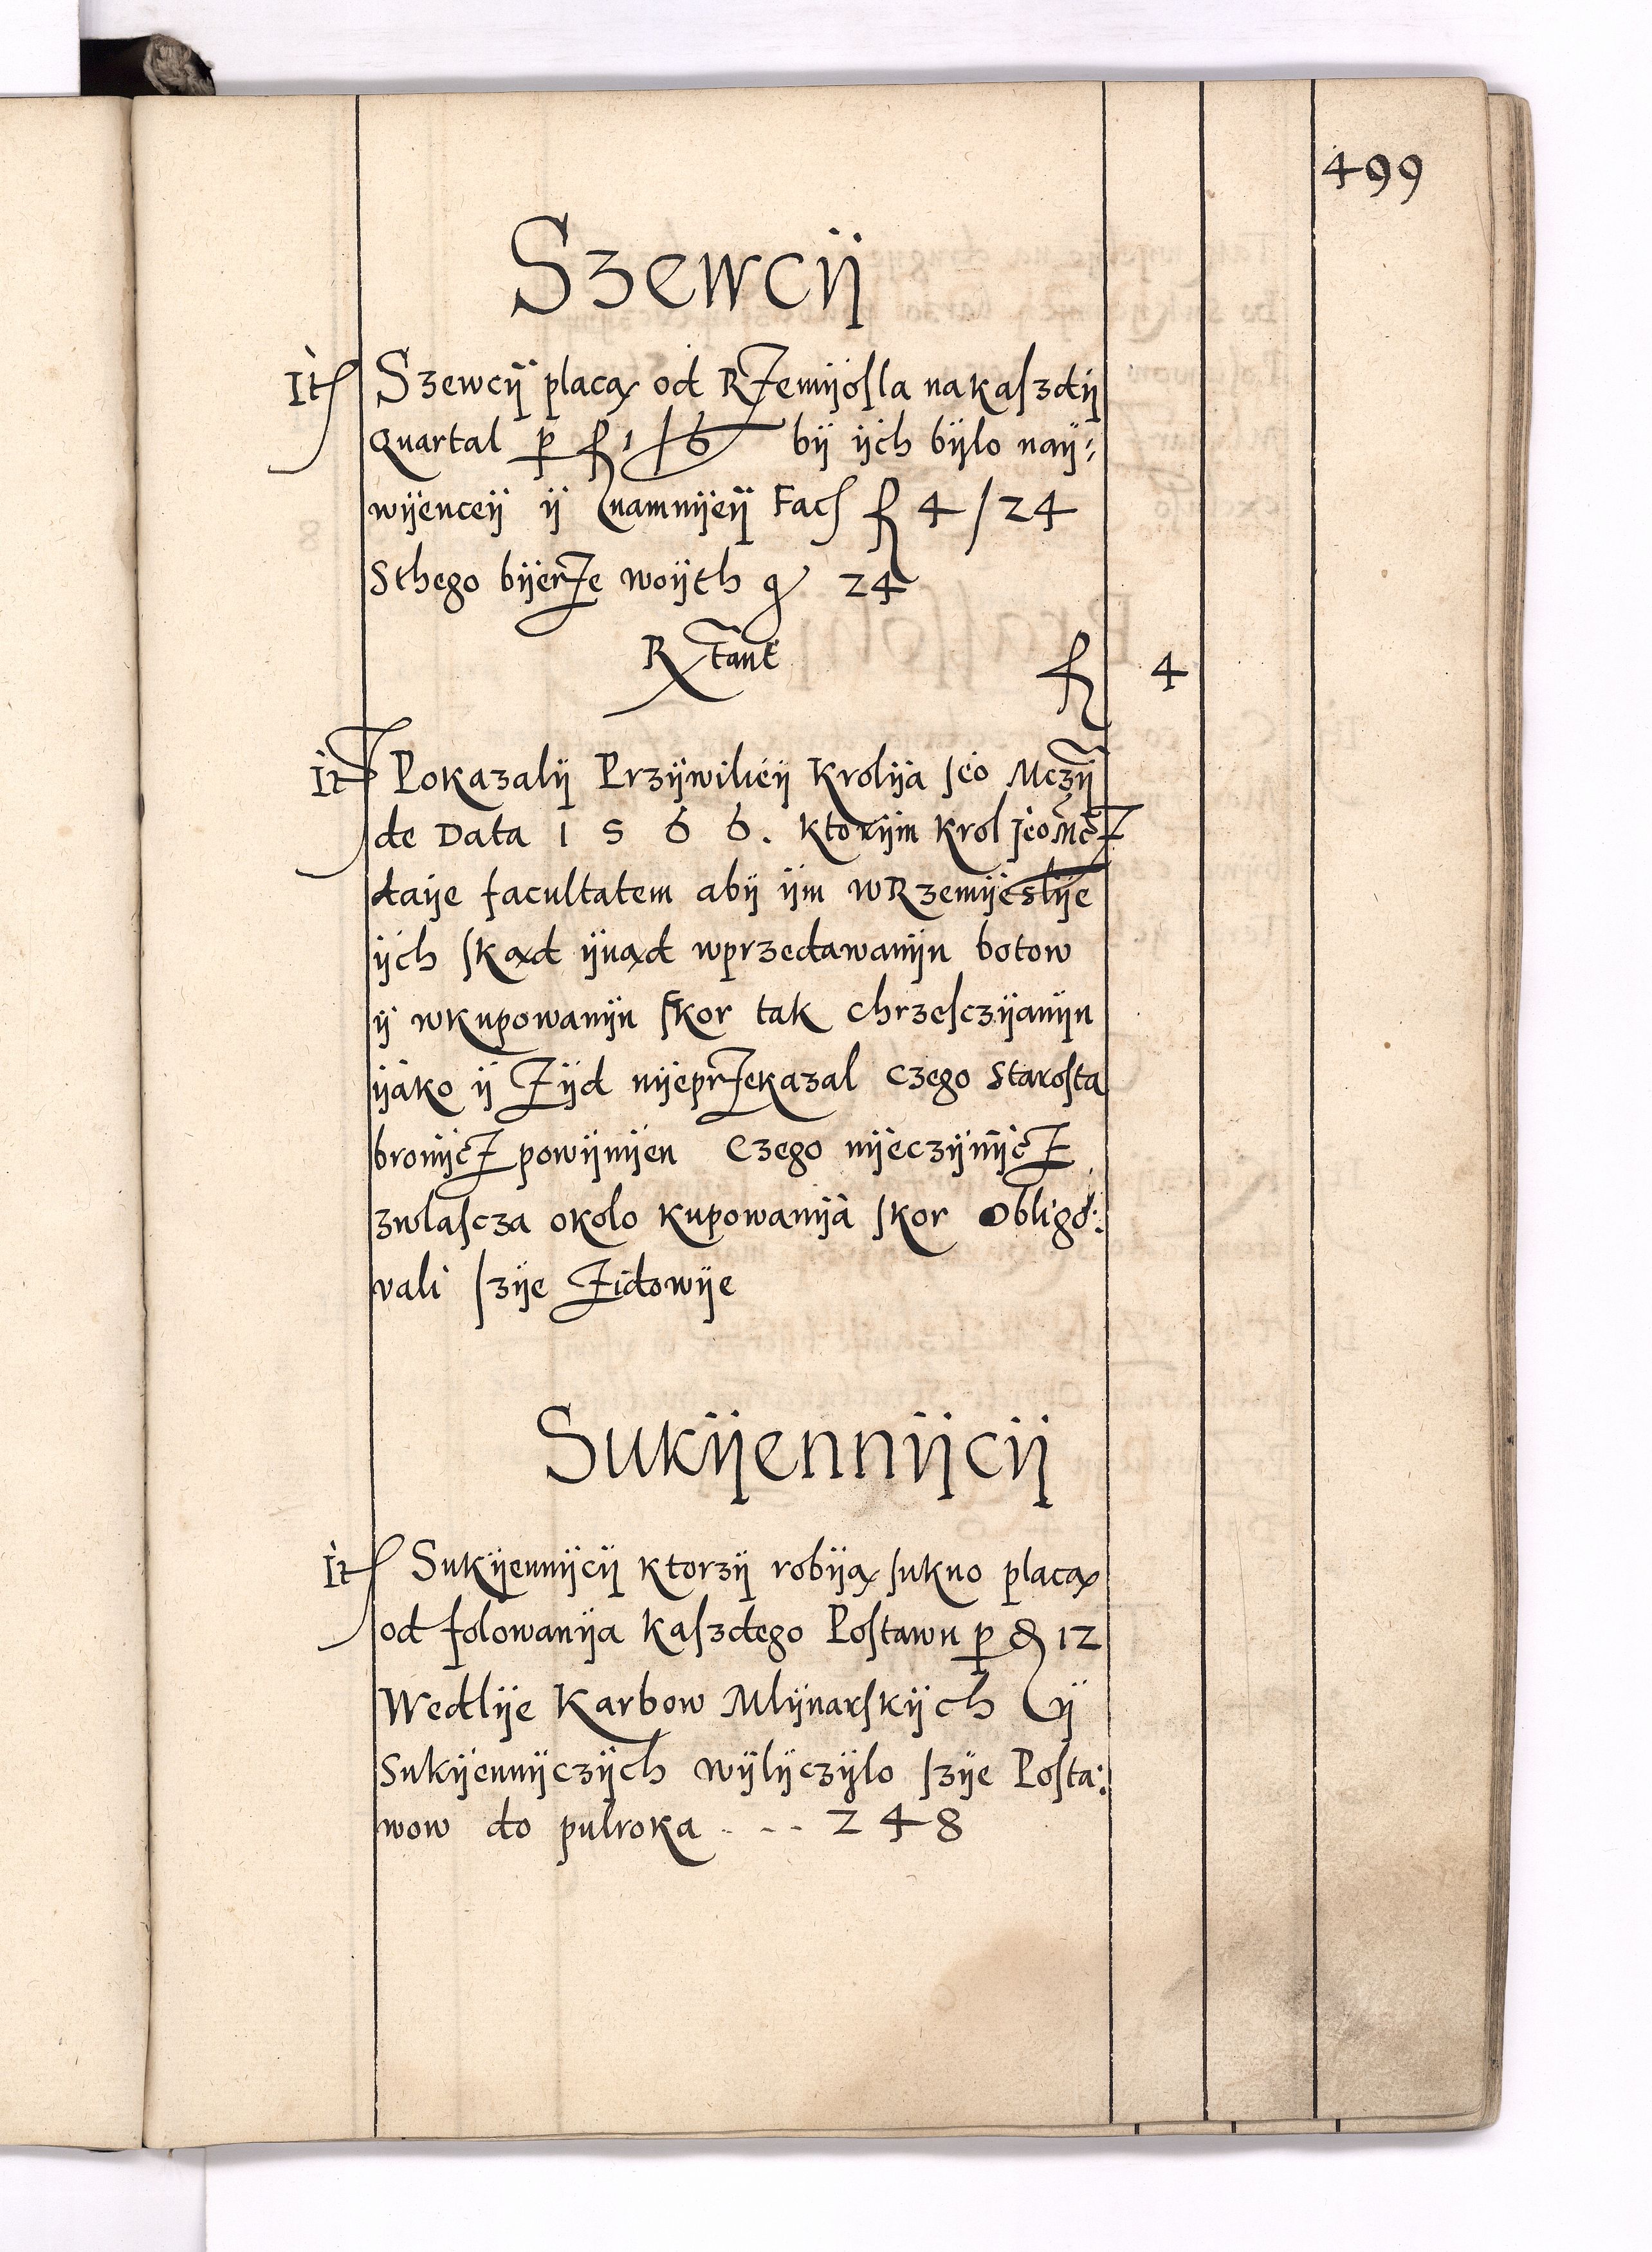 499
Szewcÿ
It Szewcÿ placą od RZemÿosla na kaſzdÿ
Quartal p f 1/6 bÿ ÿch bÿlo naÿ:
wÿenceÿ ÿ namnÿeÿ Fac f 4/24
Sthego bÿerZe woÿth g 24
Rtant f 4
It Pokazalÿ Przÿwileÿ Krolÿa Jeo Mczÿ
de Data 1566. Ktorÿm Krol Jeo McZ
daÿe facultatem abÿ ÿm WRzemÿeslÿe
ÿch ſkąd ÿnąd wprzedawanÿu botow
ÿ wKupowanÿu ſkor tak chrzeſczÿanÿn
ÿako ÿ Zÿd nÿeprZekazal czego Staroſta
bronÿcZ powÿnÿen Czego nÿeczÿnÿcZ
zwlaſcza okolo Kupowanÿa ſkor Obligo:
vali ſzÿe Zidowÿe
Sukÿennÿcÿ
It Sukÿennÿcÿ ktorzÿ robÿą ſukno placą
od folowanÿa Kaſzdego Poſtawu p d 12
Wedlÿe Karbow Mlÿnarſkÿch ÿ
Sukÿennÿczÿch wÿlÿczÿlo ſzÿe Poſta:
wow do pulroka - - - 248